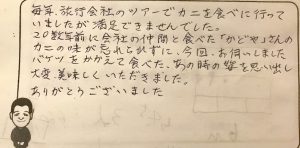 毎年、旅行会社のツアーでカニを食べに行って
いましたが満足できませんでした。
20数年前に会社の仲間と食べた「かどや」さんの
カニの味が忘れられずに、今回、お伺いしました
バケツをかかえて食べた、あの時の姿を思い出し
大変、美味しくいただきました。
ありがとうございました